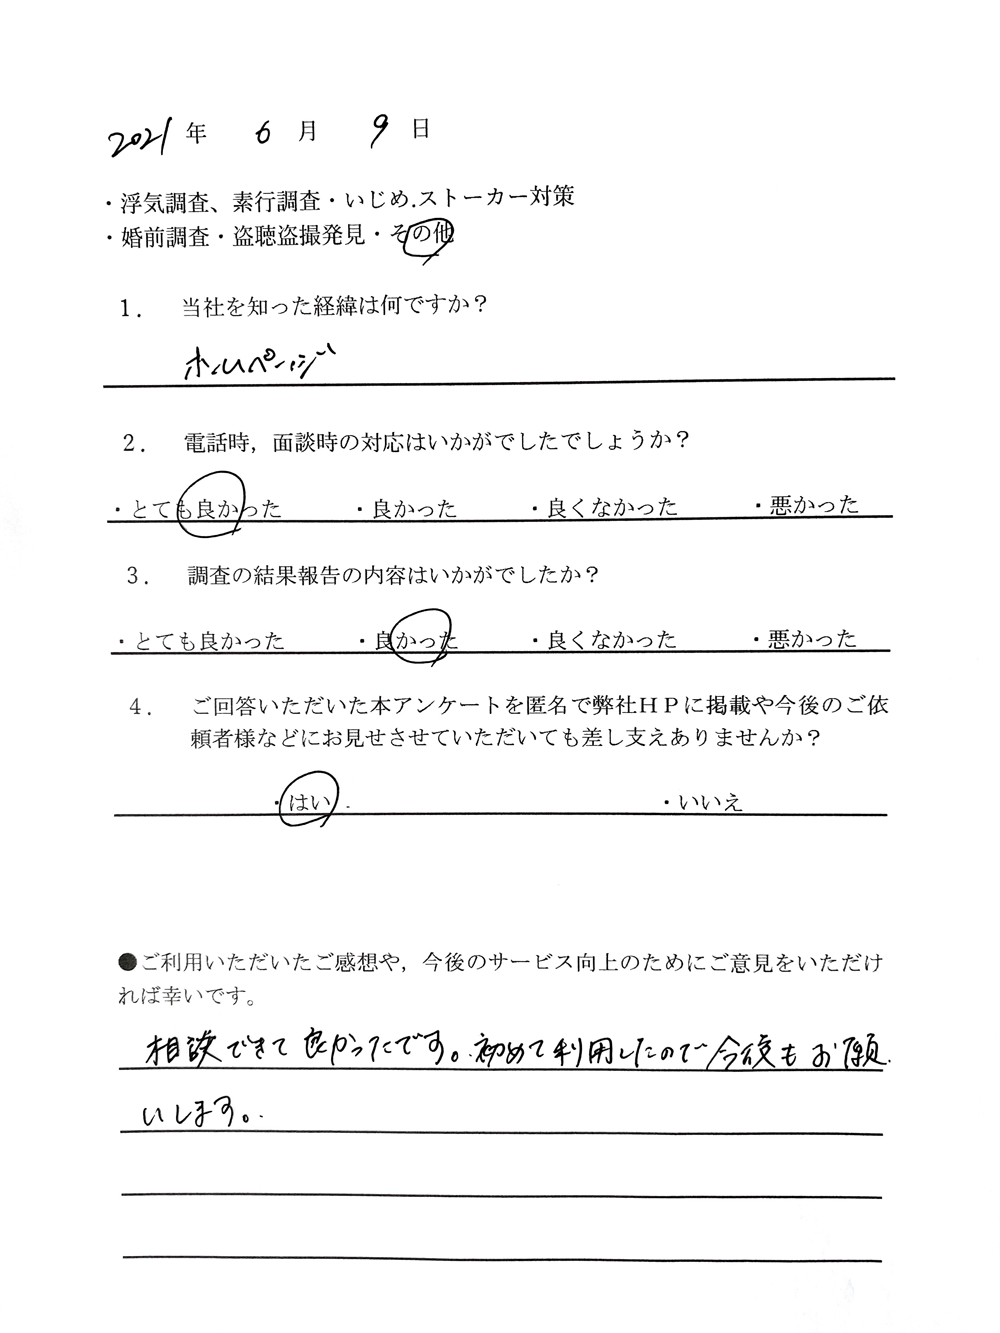 2021年 6月 9日
・浮気調査、素行調査・いじめ.ストーカー対策
・婚前調査・盗聴盗撮発見・その他
1． 当社を知った経緯は何ですか？
ホームページ
2． 電話時，面談時の対応はいかがでしたでしょうか？
・とても良かった ・良かった ・良くなかった ・悪かった
3． 調査の結果報告の内容はいかがでしたか？
・とても良かった ・良かった ・良くなかった ・悪かった
4． ご回答いただいた本アンケートを匿名で弊社ＨＰに掲載や今後のご依
頼者様などにお見せさせていただいても差し支えありませんか？
・はい． ・いいえ
●ご利用いただいたご感想や，今後のサービス向上のためにご意見をいただけ
れば幸いです。
相談できて良かったです。初めて利用したので今後もお願
いします。